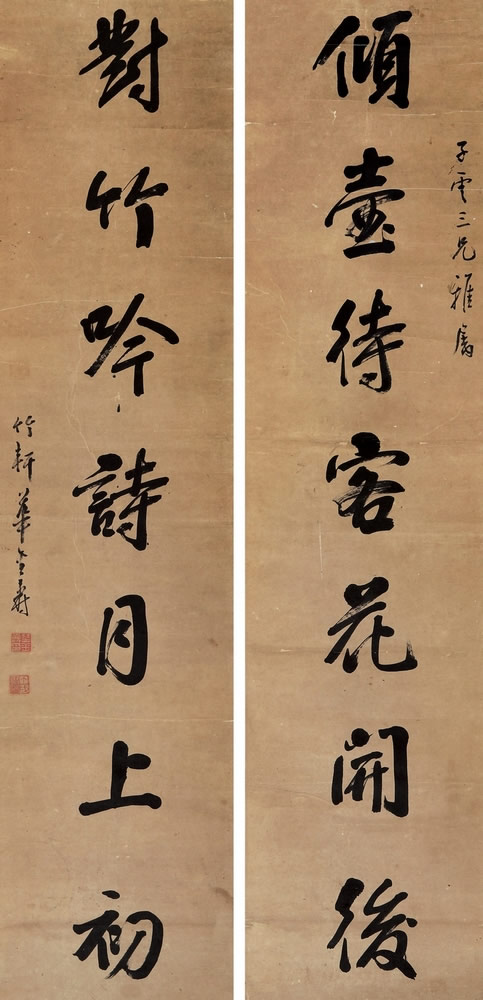 子雲三兄雅屬
傾壺待客花開後
對竹吟詩月上初
竹軒華金壽